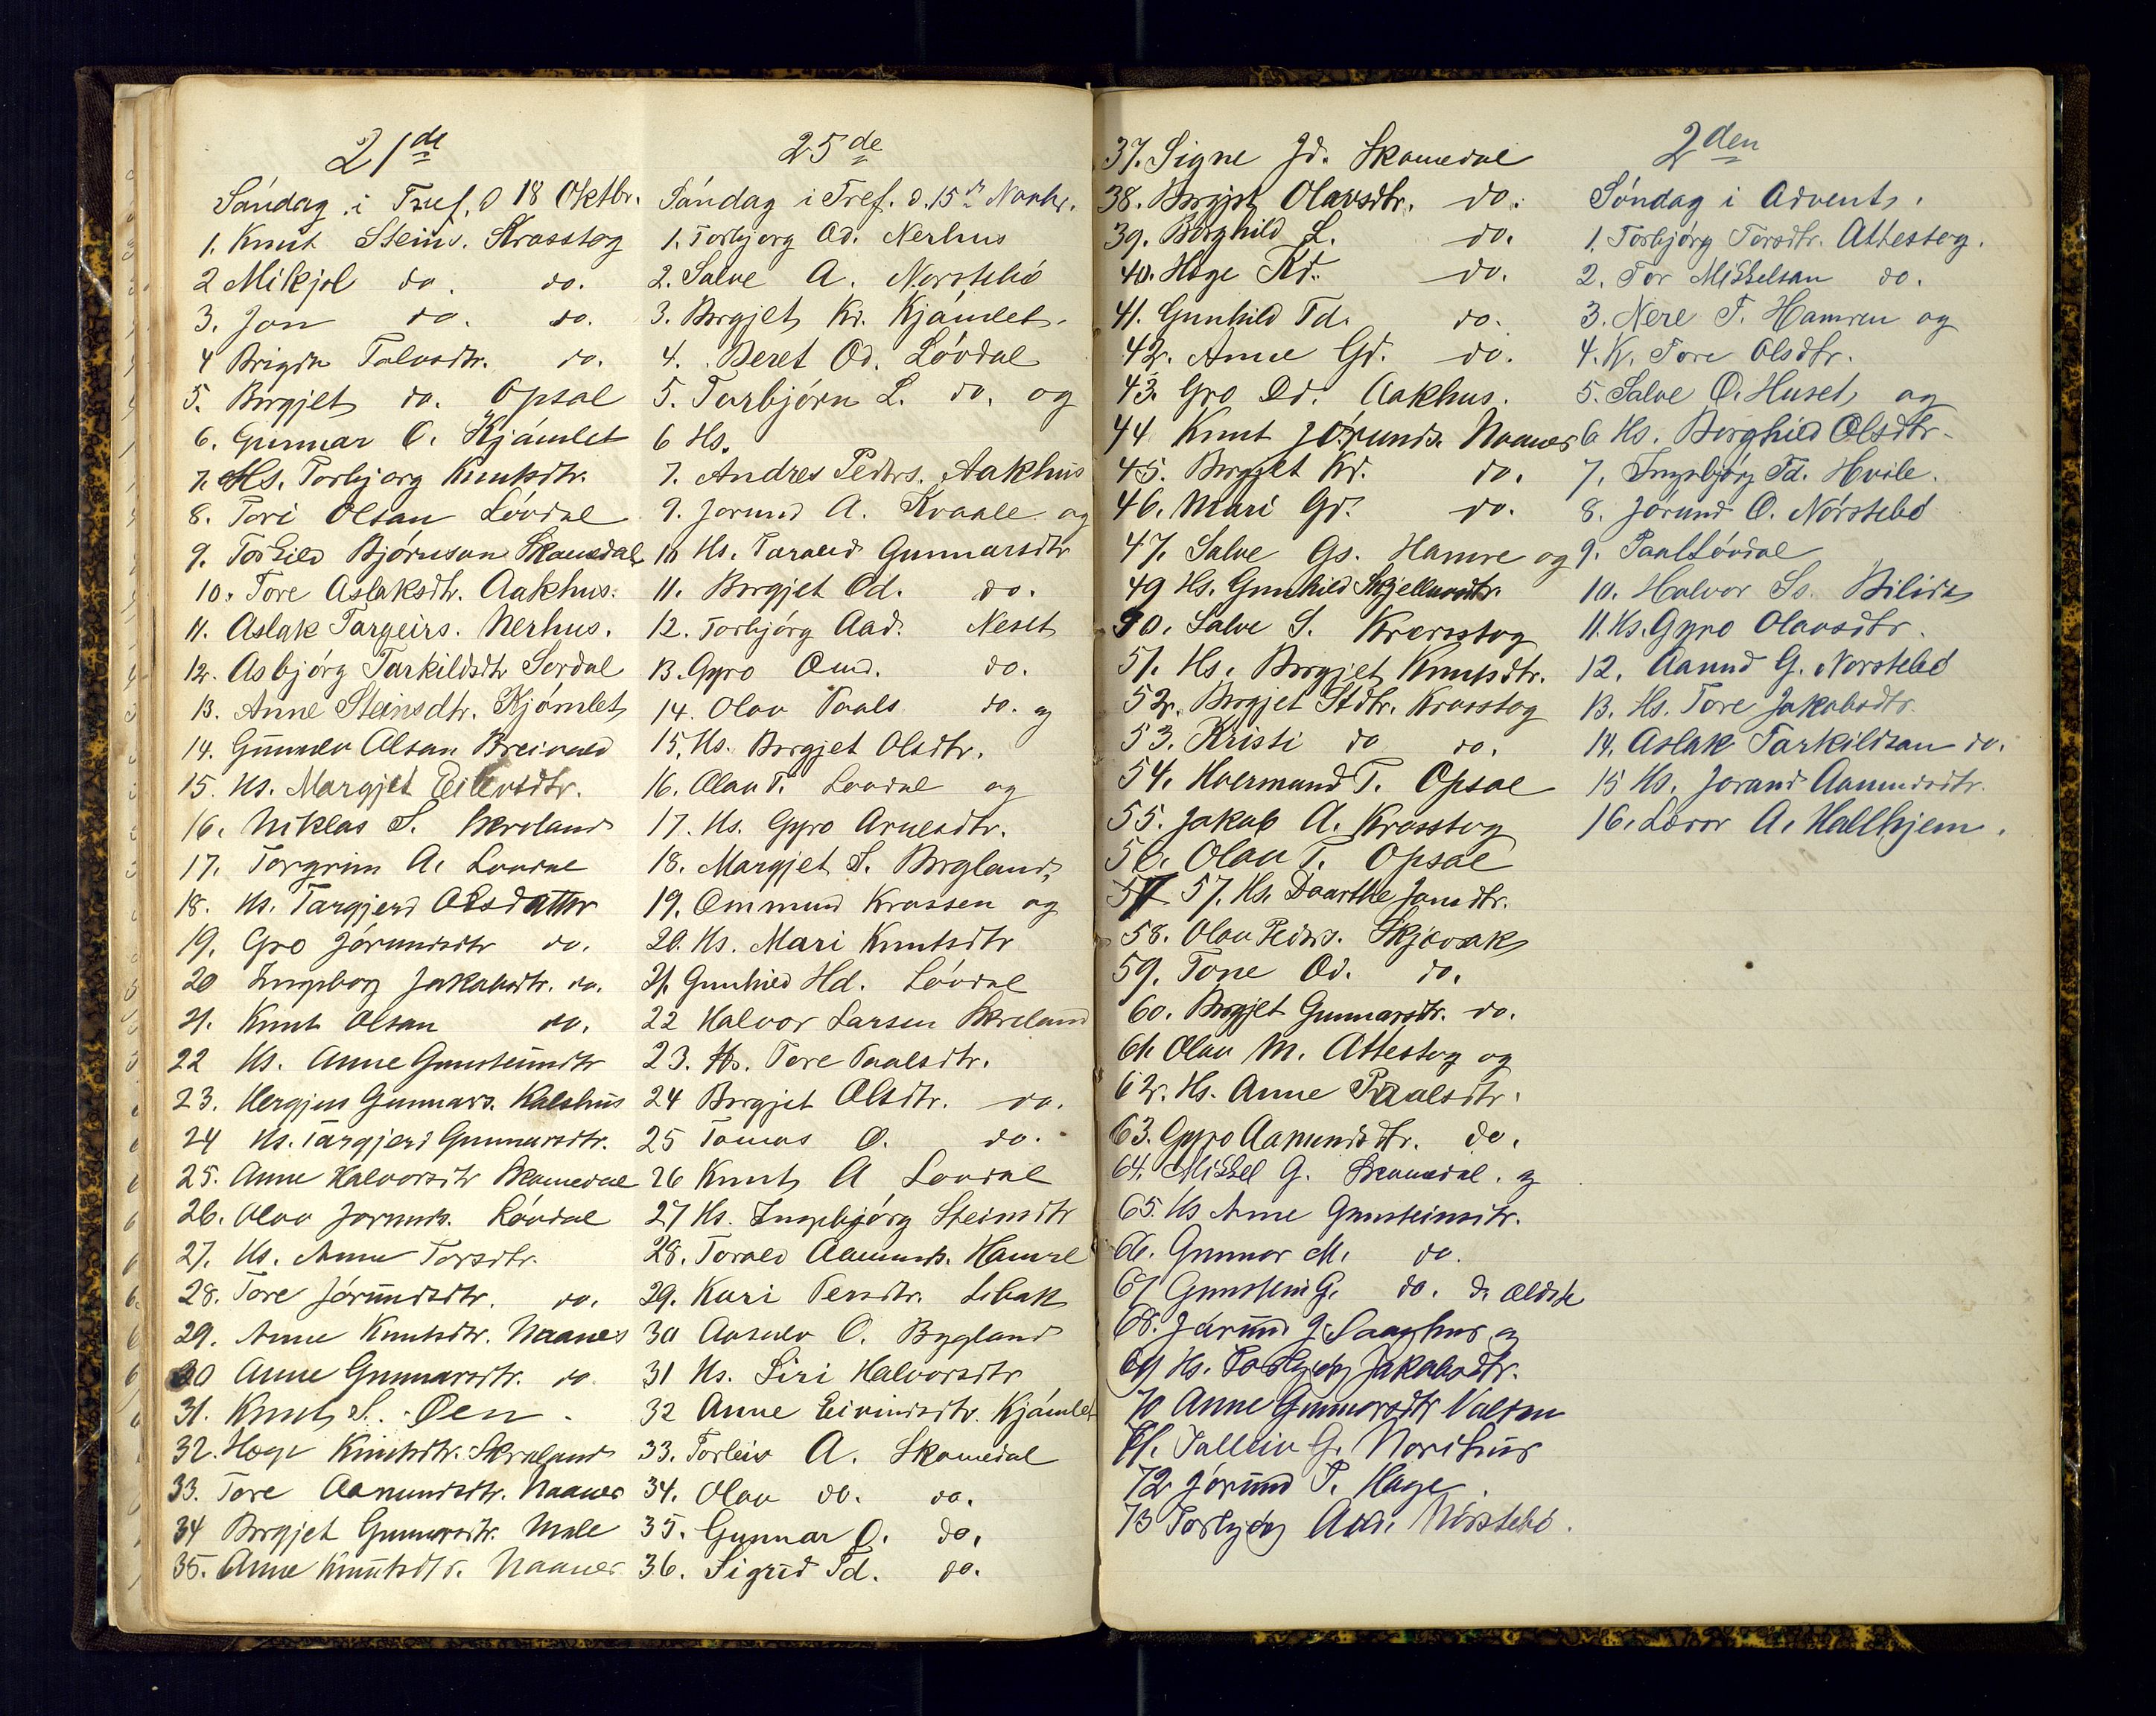 21de
Søndag i Tref. d 18 Oktbr.
1. Knut Steins. Krosstog
2 Mikjol do. do.
3. Jon do. do.
4 Brigita Talvsdtr. do.
5. Borgjet do. Opsal
6. Gunnar O. Kjómlet
7. Hs. Torbjorg Knutsdtr.
8. Tori Olsan Lóvdal
9. Torkild Bjórnson Skomedal
10. Tore Aslaksdtr. Aakhus.
11. Aslak Targeirs. Nerhus.
12. Asbjórg Tarkildsdtr Serdal
13. Anne Steinsdtr. Kjómlet
14. Gunnulv Olsan Breivald
15. Hs. Margjet Eilevsdtr.
16. Niklas S. Berland
17. Torgrim A. Lovdal
18. Hs. Targjerd Olsdatter
19. Gro Jórundsdtr do.
20 Ingeborg Jakabsdtr. do.
21. Knut Olsan do.
22 Hs. Anne Gunsteinsdtr
23. Hergjus Gunnars. Kaleshus
24 Hs. Targjerd Gunnarsdtr.
25. Anne Halvorsdtr Skomedal
26. Olav Jorunds. Lóvdal
27. Hs. Anne Torsdtr.
28. Tore Jórundsdtr. do.
29. Anne Knutsdtr. Naanes
30 Anne Gunnarsdtr. do.
31. Knut S. Øen
32. Hæge Knutsdtr. Skraland
33. Tore Aanundsdtr. Naanes
34 Borgjet Gunnarsdtr. Male
35. Anne Knutsdtr. Naanes
25de
Søndag i Tref. d. 15de Novbr.
1. Torbjorg Od. Nerhus
2. Salve A. Norstebó
3. Borgjet Kr. Kjómlet
4. Beret Od. Lóvdal
5. Torbjórn L. do. og
6 Hs.
7. Andres Peders. Aakhus
9. Jorund A. Kvaale og
10 Hs. Torald Gunnarsdtr
11. Borgjet Od. do.
12. Torbjórg Aad. Neset
13. Gyro Omd. do.
14. Olav Paals do. og
15. Hs. Borgjet Olsdtr.
16. Olav T. Lovdal og
17. Hs. Gyro Arnesdtr.
18. Margjet S. Bergland
19. Ommund Krossen og
20. Hs. Mari Knutsdtr
21. Gunhild Hd. Lóvdal
22 Halvor Larsen Berland
23. Hs. Tore Paalsdtr.
24 Borgjet Olsdtr. do.
25 Tomas O. do.
26 Knut A Lovdal
27 Hs. Ingebjórg Steinsdtr
28. Torald Aanunds. Hamre
29. Kari Persdtr. Libak
30 Aasulv O. Bygland
31 Hs. Siri Halvorsdtr
32 Anne Eivindsdtr. Kjómlet
33. Torleiv A. Skomedal
34. Olav do. do.
35. Gunnar O. do.
36. Sigrid Td. do.
37. Signe Jd. Skomedal
38. Borgjet Olavsdtr. do.
39. Borghild L. do.
40. Hæge Kd. do.
41. Gunhild Td. do.
42. Anne Gd. do.
43. Gro Od. Aakhus.
44 Knut Jórunds. Naanes
45. Borgjet Kd. do.
46. Mari Gd. do.
47. Salve Gs. Hamre og
49 Hs. Gunhild Skjelluvdtr.
50. Salve S. Krosstog
51. Hs. Borgjet Knutsdtr.
52. Borgjet Stdtr. Krosstog
53. Kristi do do.
54. Hvermund T. Opsal
55. Jakob A. Krosstog
56. Olav T. Opsal
57 57. Hs. Doarthe Jonsdtr.
58. Olav Peders. Skjævak
59. Tone Od. do.
60. Borgjet Gunnarsdtr. do.
61. Olav M. Attestog og
62. Hs. Anne Paalsdtr.
63. Gyro Aanundsdtr. do.
64. Mikkel G. Skomedal. og
65. Hs Anne Gunsteinsdtr.
66. Gunnar M. do.
67 Gunstein G. do. d. ældste
68. Jórund J. Laaghus og
69 Hs. Torbjórg Jakabsdtr.
70 Anne Gunnarsdtr
71. Talleiv G. Nordhus
72 Jórund T. Hage.
73 Torbjórg Aad. Nórstebó.
2den
Søndag i Advent.
1. Torbjórg Torsdtr. Attestog.
2. Tor Mikkelsan do.
3. Nere T. Hamren og
4. K. Tore Olsdtr.
5. Salve O. Huset og
6 Hs. Borghild Olsdtr.
7. Ingebjórg Td. Hvile.
8. Jórund O. Nórstebó
9. Paal Lóvdal
10. Halvor Ss.
11. Hs. Gyro Olavsdtr.
12. Aanund G. Norstebó
13. Hs. Tore Jakobsdtr.
14. Aslak Tarkildsan do.
15 Hs. Jorand Aanundsdtr.
16. Lovor A. Hallhjem.